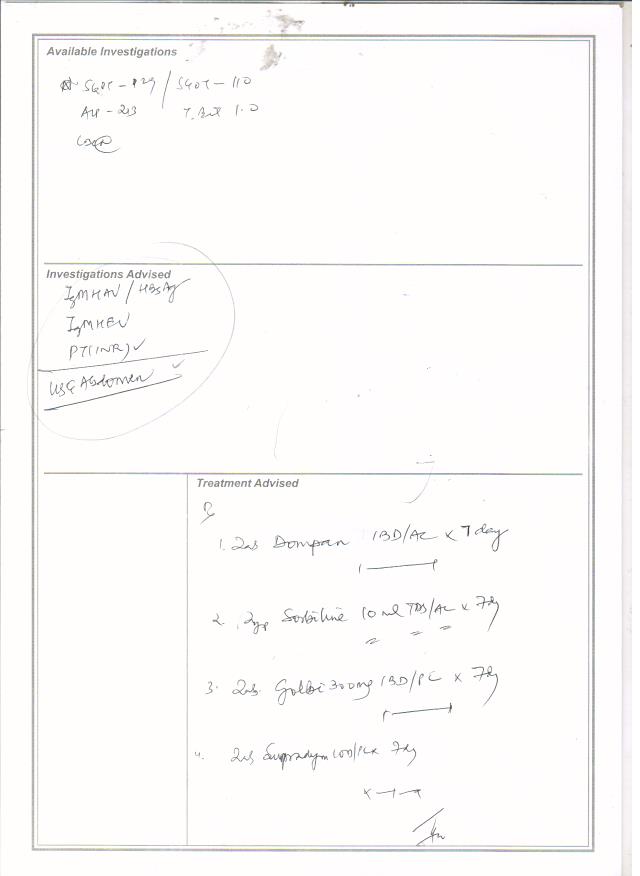 Available Investigations
SGPT - 129 / SGOT - 110
ALP - 213 T. Bil 1.0
Investigations Advised
IgM HAV / HBsAg
IgM HEV
PT (INR) ✓
USG Abdomen ✓
Treatment Advised
1. Tab Dompan 1BD/AC x 7 day
2. Syp Sorbiline 10 ml TDS/AC x 7 dy
3. Tab. Golbi 300mg 1BD/PC x 7 dy
4. Tab Supradyn 1OD/PC x 7 dy